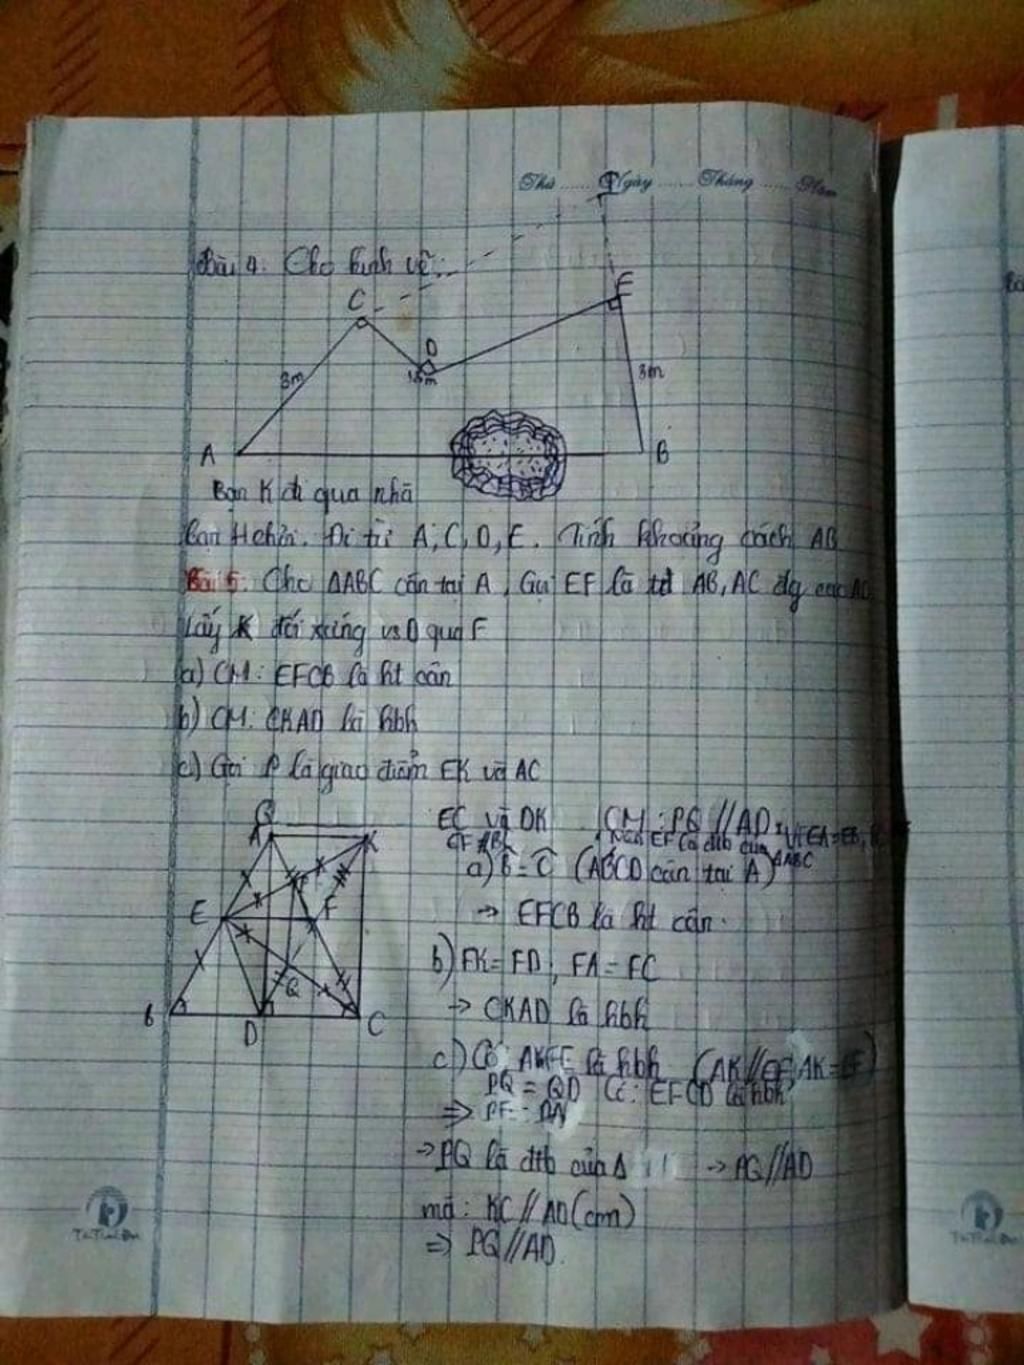 Thứ ...... Ngày ...... Tháng ...... Năm
F
Bài 4. Cho hình vẽ:
C
E
D
3m
3m
A
B
Bạn K đi qua nhà
bạn H chơi. Đi từ A, C, D, E. Tính khoảng cách AB
Bài 5: Cho ΔABC cân tại A, Gọi EF là tđ AB, AC
Lấy K đối xứng vs D qua F
a) CM: EFCB là ht cân
b) CM: CKAD là hbh
c) Gọi P là giao điểm EK và AC
Q EC và DK CM: PQ // AD
A K
a) B̂ = Ĉ (ABCD cân tại A)
E F
→ EFCB là ht cân.
b) FK = FD, FA = FC
Q
B D C
→ CKAD là hbh
c) Có AKFE là hbh (AK // EF, AK = EF)
PQ = QD Có: EFCD là hbh
→ PQ là đtb của Δ → PQ // AD
mà: KC // AD (cm)
⇒ PQ // AD.